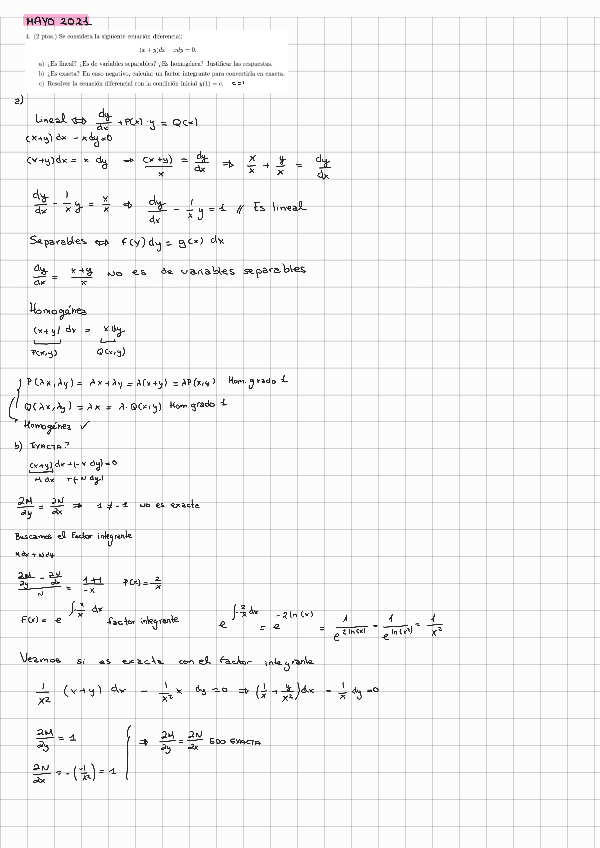 MAYO 2021
4. (2 ptos.) Se considera la siguiente ecuación diferencial:
(x + y)dx − xdy = 0.
a) ¿Es lineal? ¿Es de variables separables? ¿Es homogénea? Justificar las respuestas.
b) ¿Es exacta? En caso negativo, calcular un factor integrante para convertirla en exacta.
c) Resolver la ecuación diferencial con la condición inicial y(1) = e.
a)
Lineal ⇔ dy/dx + P(x)·y = Q(x)
(x+y) dx - x dy = 0
(x+y) dx = x dy → (x+y)/x = dy/dx ⇒ x/x + y/x = dy/dx
dy/dx - 1/x y = x/x ⇒ dy/dx - 1/x y = 1 // Es lineal
Separables ⇔ f(y) dy = g(x) dx
dy/dx = x+y/x No es de variables separables
Homogénea
(x+y) dx = x dy
P(x,y) Q(x,y)
P(λx, λy) = λx + λy = λ(x+y) = λP(x,y) Hom. grado 1
Q(λx, λy) = λx = λ·Q(x,y) Hom grado 1
Homogénea ✓
b) EXACTA?
(x+y) dx + (-x dy) = 0
M dx + (-N dy)
∂M/∂y = ∂N/∂x ⇒ 1 ≠ -1 no es exacta
Buscamos el Factor integrante
M dx + N dy
(∂M/∂y - ∂N/∂x)/N = 1+1/-x P(x) = 2/x
F(x) = e^∫2/x dx factor integrante e^∫-2/x dx = e^-2ln(x) = 1/e^2ln(x) = 1/e^ln(x²) = 1/x²
Veamos si es exacta con el factor integrante
1/x² (x+y) dx - 1/x² x dy = 0 ⇒ (1/x + y/x²) dx - 1/x dy = 0
∂M/∂y = 1
⇒ ∂M/∂y = ∂N/∂x EDO EXACTA
∂N/∂x = -(-1/x²) = 1